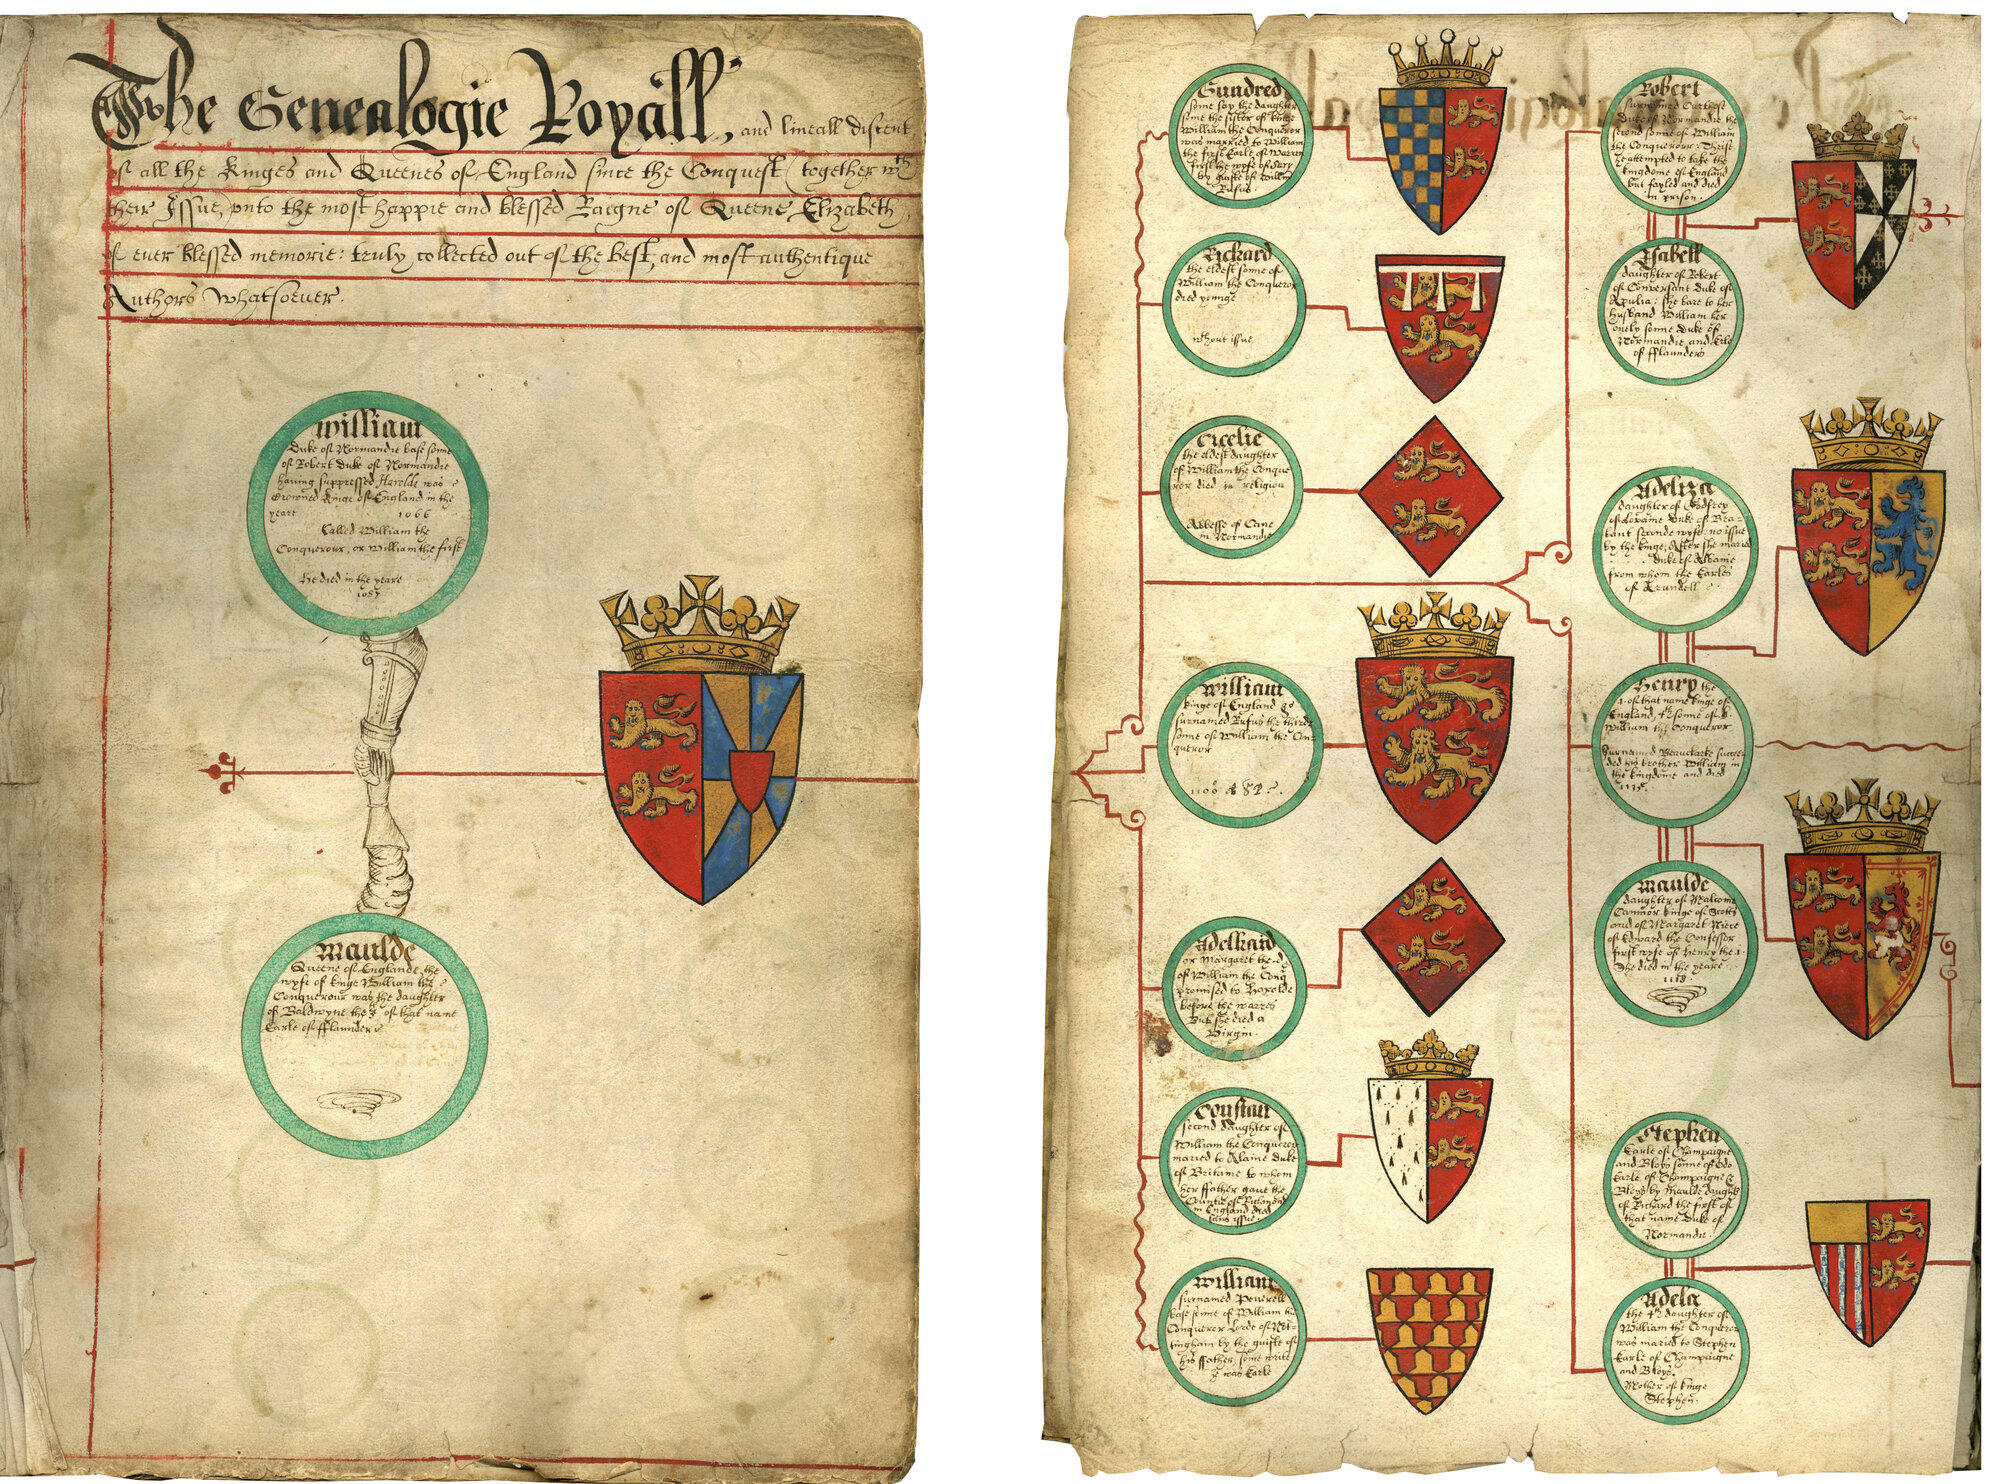 The Genealogie Royall, and lineall discent
of all the Kinges and Queenes of England since the Conquest (together wth
their Issue, vnto the most happie and blessed Raigne of Queene Elizabeth,
of euer blessed memorie: truly collected out of the best, and most authentique
Authors whatsoeuer.
William
Duke of Normandie base sonne
of Robert Duke of Normandie
having suppressed Harolde was
Crowned Kinge of England in the
yeare 1066
Called William the
Conquerour, or William the first
He died in the yeare
1087
Maulde
Queene of Englande, the
wyfe of kinge William the
Conquerour was the daughter
of Baldwyne the 5 of that name
Earle of fflaunders
Gundred
some say the daughter
some the sister of kinge
William the Conquerer
was married to William
the first Earle of Warren
first he wyfe of
by guifte of William
Rufus
Richard
the eldest sonne of
William the Conqueror
died younge
wthout issue
Cicelie
the eldest daughter
of William the Conque
ror died in religion
Abbesse of Cane
in Normandie
William
kinge of England
surnamed Rufus the thirde
sonne of William the Con
queror
1100
Adelizard
or Margaret the
of William the Conq
promised to Harolde
before the warres
But she died a
Virgin.
Constan
second daughter of
William the Conqueror
maried to Alaine Duke
of Britaine to whom
her ffather gaue the
Countie of Richmond
in England died
sans issue
William
surnamed Peuerell
base sonne of William the
Conqueror Lorde of Not-
tingham by the guifte of
his ffather, some write
he was Earle
Robert
surnamed Curthose
Duke of Normandie the
second sonne of William
the Conquerour: Thrise
he attempted to take the
kingdome of England
but fayled and died
in prison.
Isabell
daughter of Robert
of Conversant Duke of
Apulia: she bare to her
husband William her
onely sonne Duke of
Normandie and Erle
of fflaunders
Adeliza
daughter of Godfrey
of Loraine Duke of Bra-
bant seconde wyfe: no issue
by the kinge, After she maried
Duke of Albanie
from whom the Earles
of Arundell
Henry the
1. of that name kinge of
England, 4th sonne of k.
William the Conqueror
surnamed Beauclarke succee-
ded his brother William in
the kingdome and died
1135.
Maulde
daughter of Malcome
Canmor kinge of Scotts
and of Margaret Niece
of Edward the Confessor
first wyfe of Henry the 1.
She died in the yeare
1118
Stephen
Earle of Champaigne
and Bloys sonne of Odo
Earle of Champaigne &
Bloys by Maulde daught
of Richard the first of
that name Duke of
Normandie.
Adela
the 4th daughter of
William the Conqueror
was maried to Stephen
Earle of Champaigne
and Bloys.
Mother of kinge
Stephen.